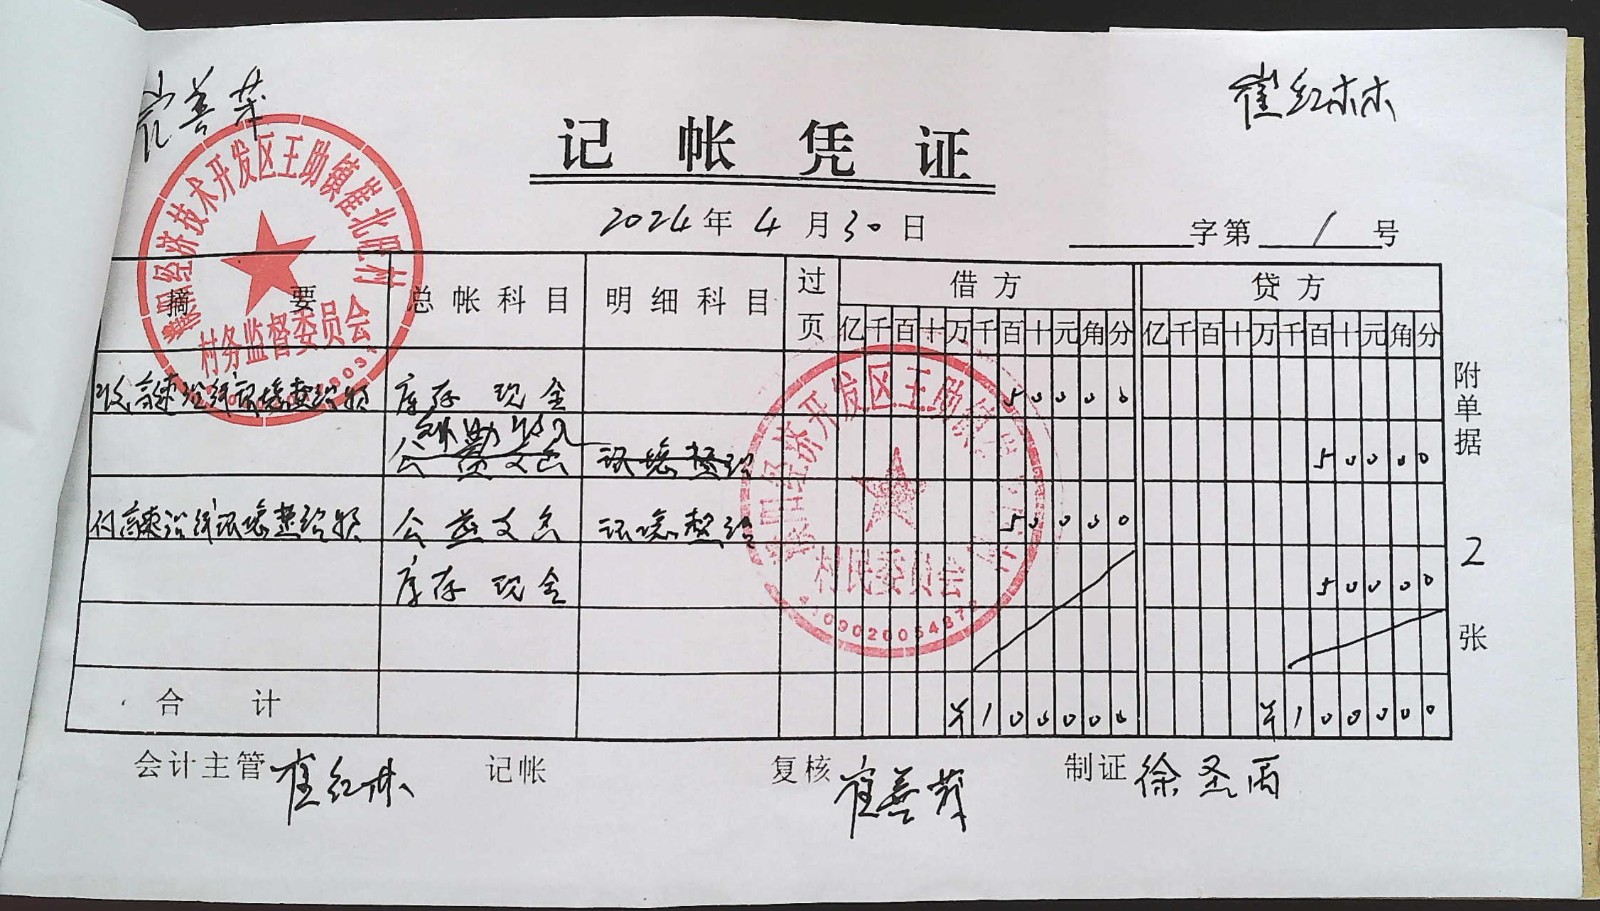 崔善荣
崔红林
记帐凭证
2024年4月30日
字第 1 号
经济技术开发区王助镇崔北肥村
村务监督委员会
摘要 总帐科目 明细科目 过页 借方 贷方
亿千百十万千百十元角分 亿千百十万千百十元角分
收高速沿线环境整治款 库存现金 50000
公益支出 环境整治 50000
付高速沿线环境整治款 公益支出 环境整治 50000
库存现金 50000
经济开发区王助镇
村民委员会
合计 ¥100000 ¥100000
附单据 2 张
会计主管 崔红林 记帐 复核 崔善荣 制证 徐圣雨